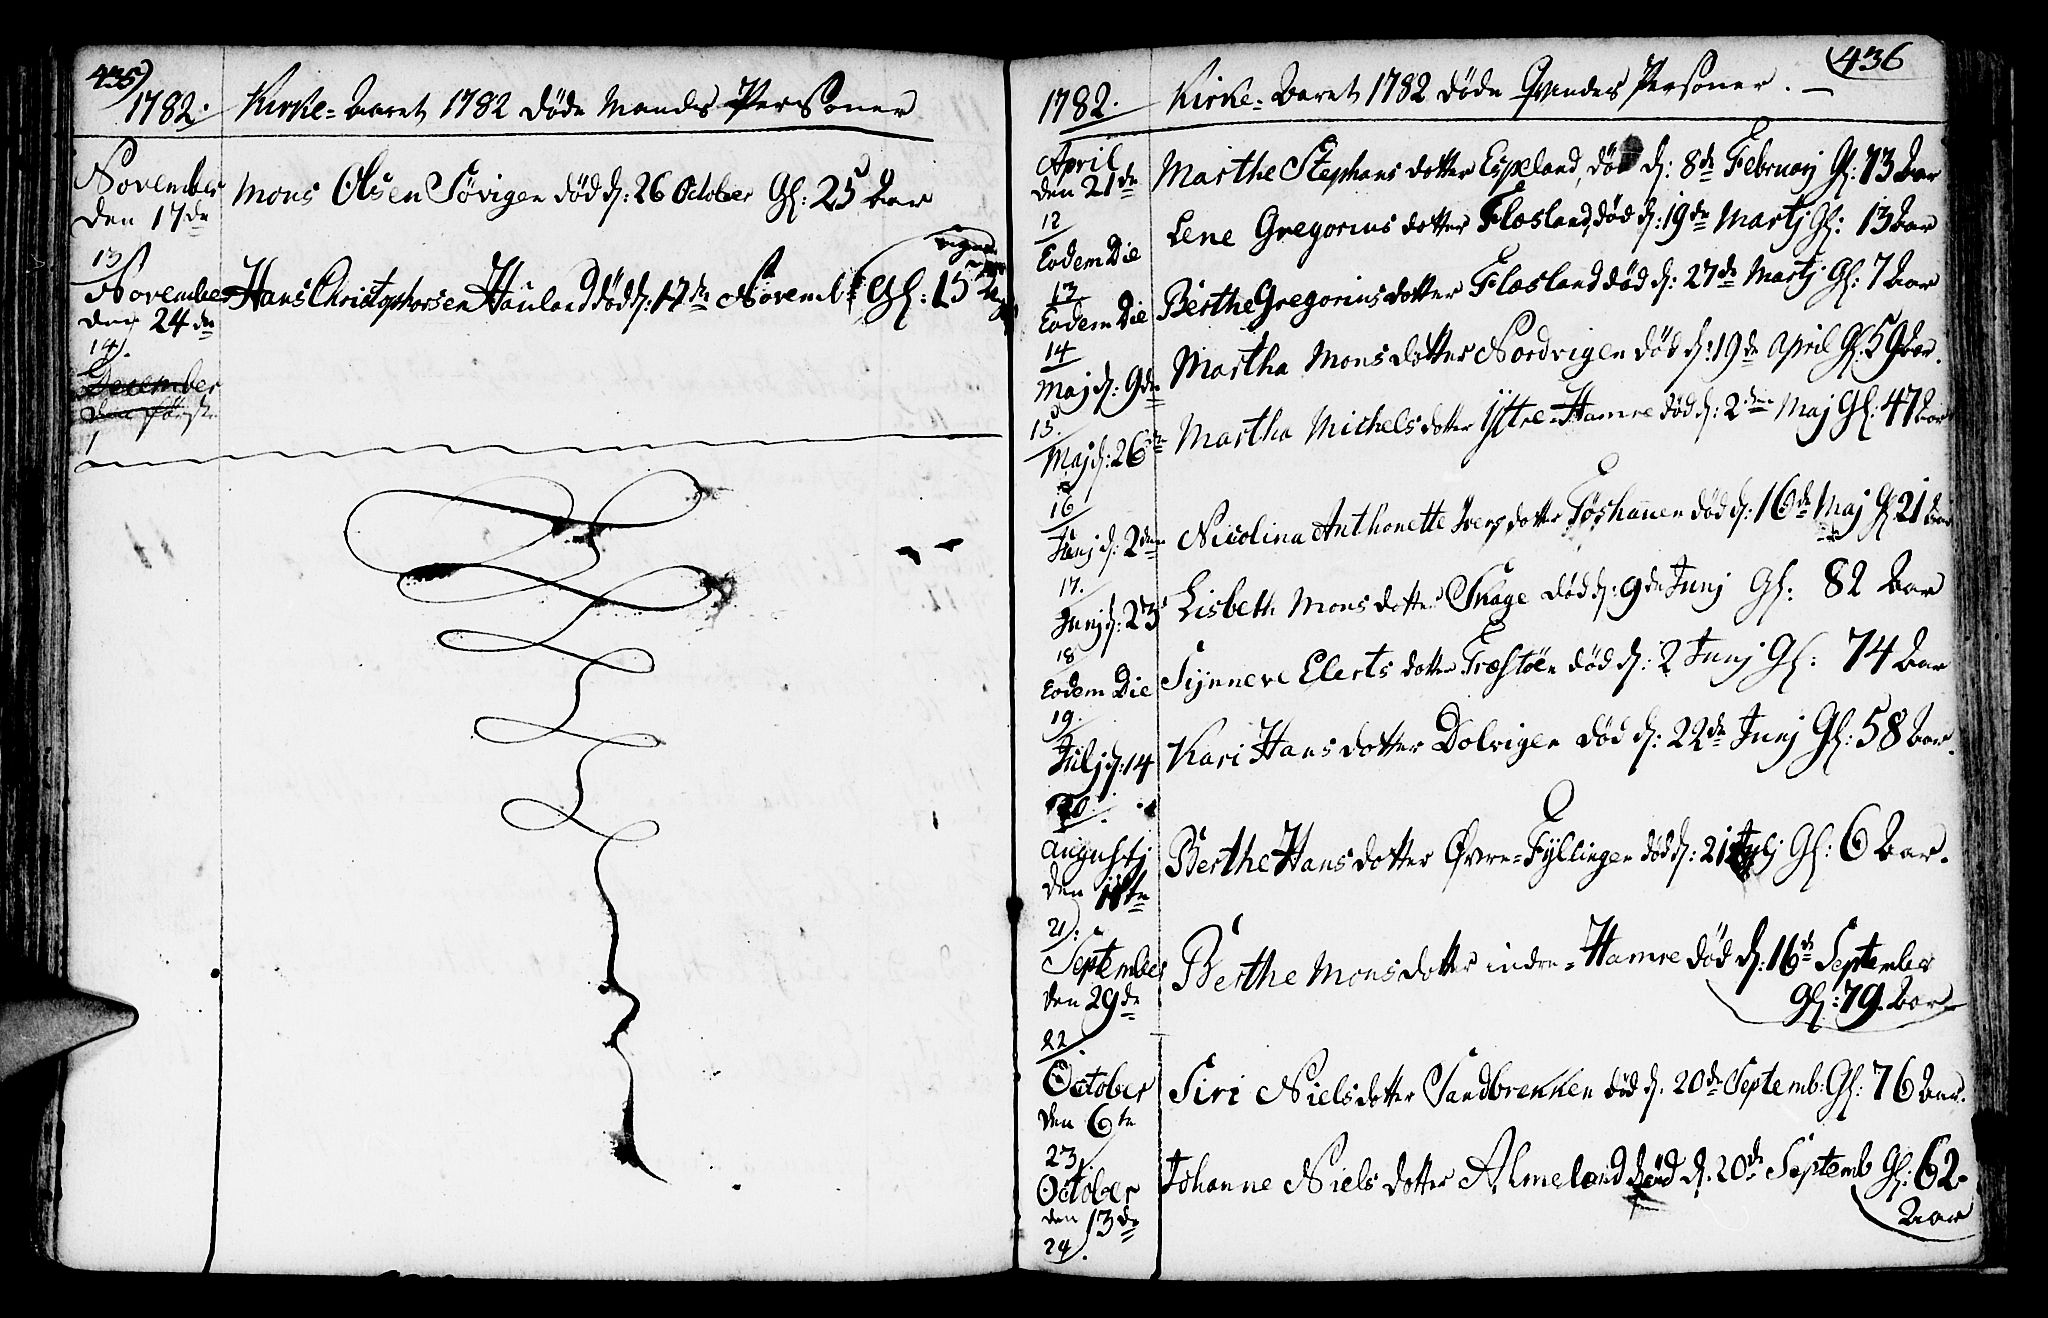 435)
1782. Kirke-Aaret 1782 døde Mands Personer
November
den 17de Mons Olsen Søvigen død d: 26 October Gl: 25 Aar
13
November Hans Christophersen Hauland død d: 17de Novemb: Gl: 15
den 24de
14.
December
den første
1
436
1782. Kirke-Aaret 1782 døde Qvindes Personer.
April
den 21de Marthe Stephans dotter Espeland, død d: 8de Februarj Gl: 73 Aar
12
Eodem Die Lene Gregorius dotter Flæsland, død d: 19de Martj Gl: 13 Aar
13
Eodem Die Berthe Gregorius dotter Flæsland død d: 27de Martj Gl: 7 Aar
14
Maj d: 9de Martha Mons dotter Nordvigen død d: 19de April Gl: 59 Aar.
15.
Maj d: 26de Martha Michels dotter Ytre-Hamre død d: 2den Maj Gl: 47 Aar
16
Junj d: 2den Nicolina Anthonette Ivers dotter Tøshauen død d: 16de Maj Gl: 21 Aar
17.
Junj d: 23 Lisbeth Mons dotter Skage død d: 9de Junj Gl: 82 Aar
18
Eodem Die Synneve Elerts dotter Træstöen død d: 2 Junj Gl: 74 Aar
19.
Julj d: 14 Kari Hans dotter Dolvigen død d: 22de Junj Gl: 58 Aar.
20.
Augustj
den 18de Berthe Hans dotter Øvre-Fyllingen død d: 21 Julj Gl: 6 Aar.
21.
September
den 29de Berthe Mons dotter indre-Hamre død d: 16de September
Gl: 79. Aar
22.
October
den 6te Siri Niels dotter Sandbrekken død d. 20de Septemb: Gl: 76 Aar.
23.
October
den 13de Johanne Niels dotter Almeland død d. 20de Septemb Gl: 62
Aar
24.